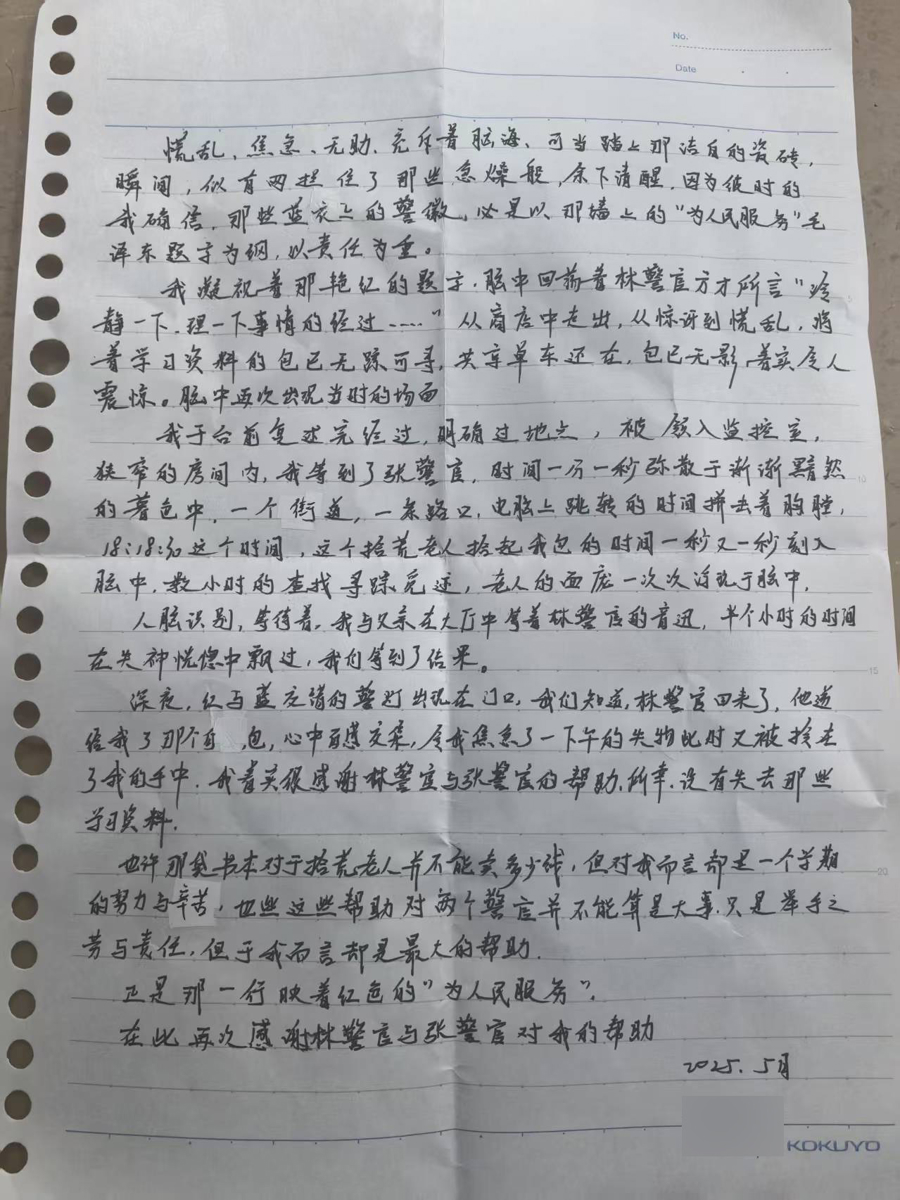 No.
Date
慌乱、焦急、无助、充斥着脑海、可当踏上那洁白的瓷砖，
瞬间，似有两担住了那些急燥般，余下清醒，因为彼时的
我确信，那些蓝衣上的警徽，必是以、那墙上的“为人民服务”毛
泽东题字为纲，以责任为重。
我凝视着那艳红的题字，脑中回荡着林警官方才所言“冷
静一下，理一下事情的经过……”从商店中走出，从惊讶到慌乱，将
着学习资料的包已无踪可寻，共享单车还在，包已无影，着实令人
震惊。脑中再次出现当时的场面
我于台前复述完经过，明确过地点，被领入监控室，
狭窄的房间内，我等到了张警官，时间一分一秒弥散于渐渐黯然
的暮色中，一个街道，一条路口，电脑上跳转的时间拼击着胸膛，
18:18:30这个时间，这个拾荒老人拾起我包的时间一秒又一秒刻入
脑中，数小时的查找寻踪觅迹，老人的面庞一次次浮现于脑中，
人脸识别，等待着，我与父亲在大厅中等着林警官的音迅，半个小时的时间
在失神恍惚中飘过，我们等到了结果。
深夜，红与蓝交错的警灯出现在门口，我们知道，林警官回来了，他递
给我了那个 包，心中百感交集，令我焦急了一下午的失物此时又被拎在
了我的手中，我着实很感谢林警官与张警官的帮助，所幸，没有失去那些
学习资料，
也许那袋书本对于拾荒老人并不能卖多少钱，但对我而言却是一个学期
的努力与辛苦，也些这些帮助对两个警官并不能算是大事，只是举手之
劳与责任，但于我而言却是最大的帮助，
正是那一行映着红色的“为人民服务”，
在此再次感谢林警官与张警官对我的帮助
2025.5月
KOKUYO